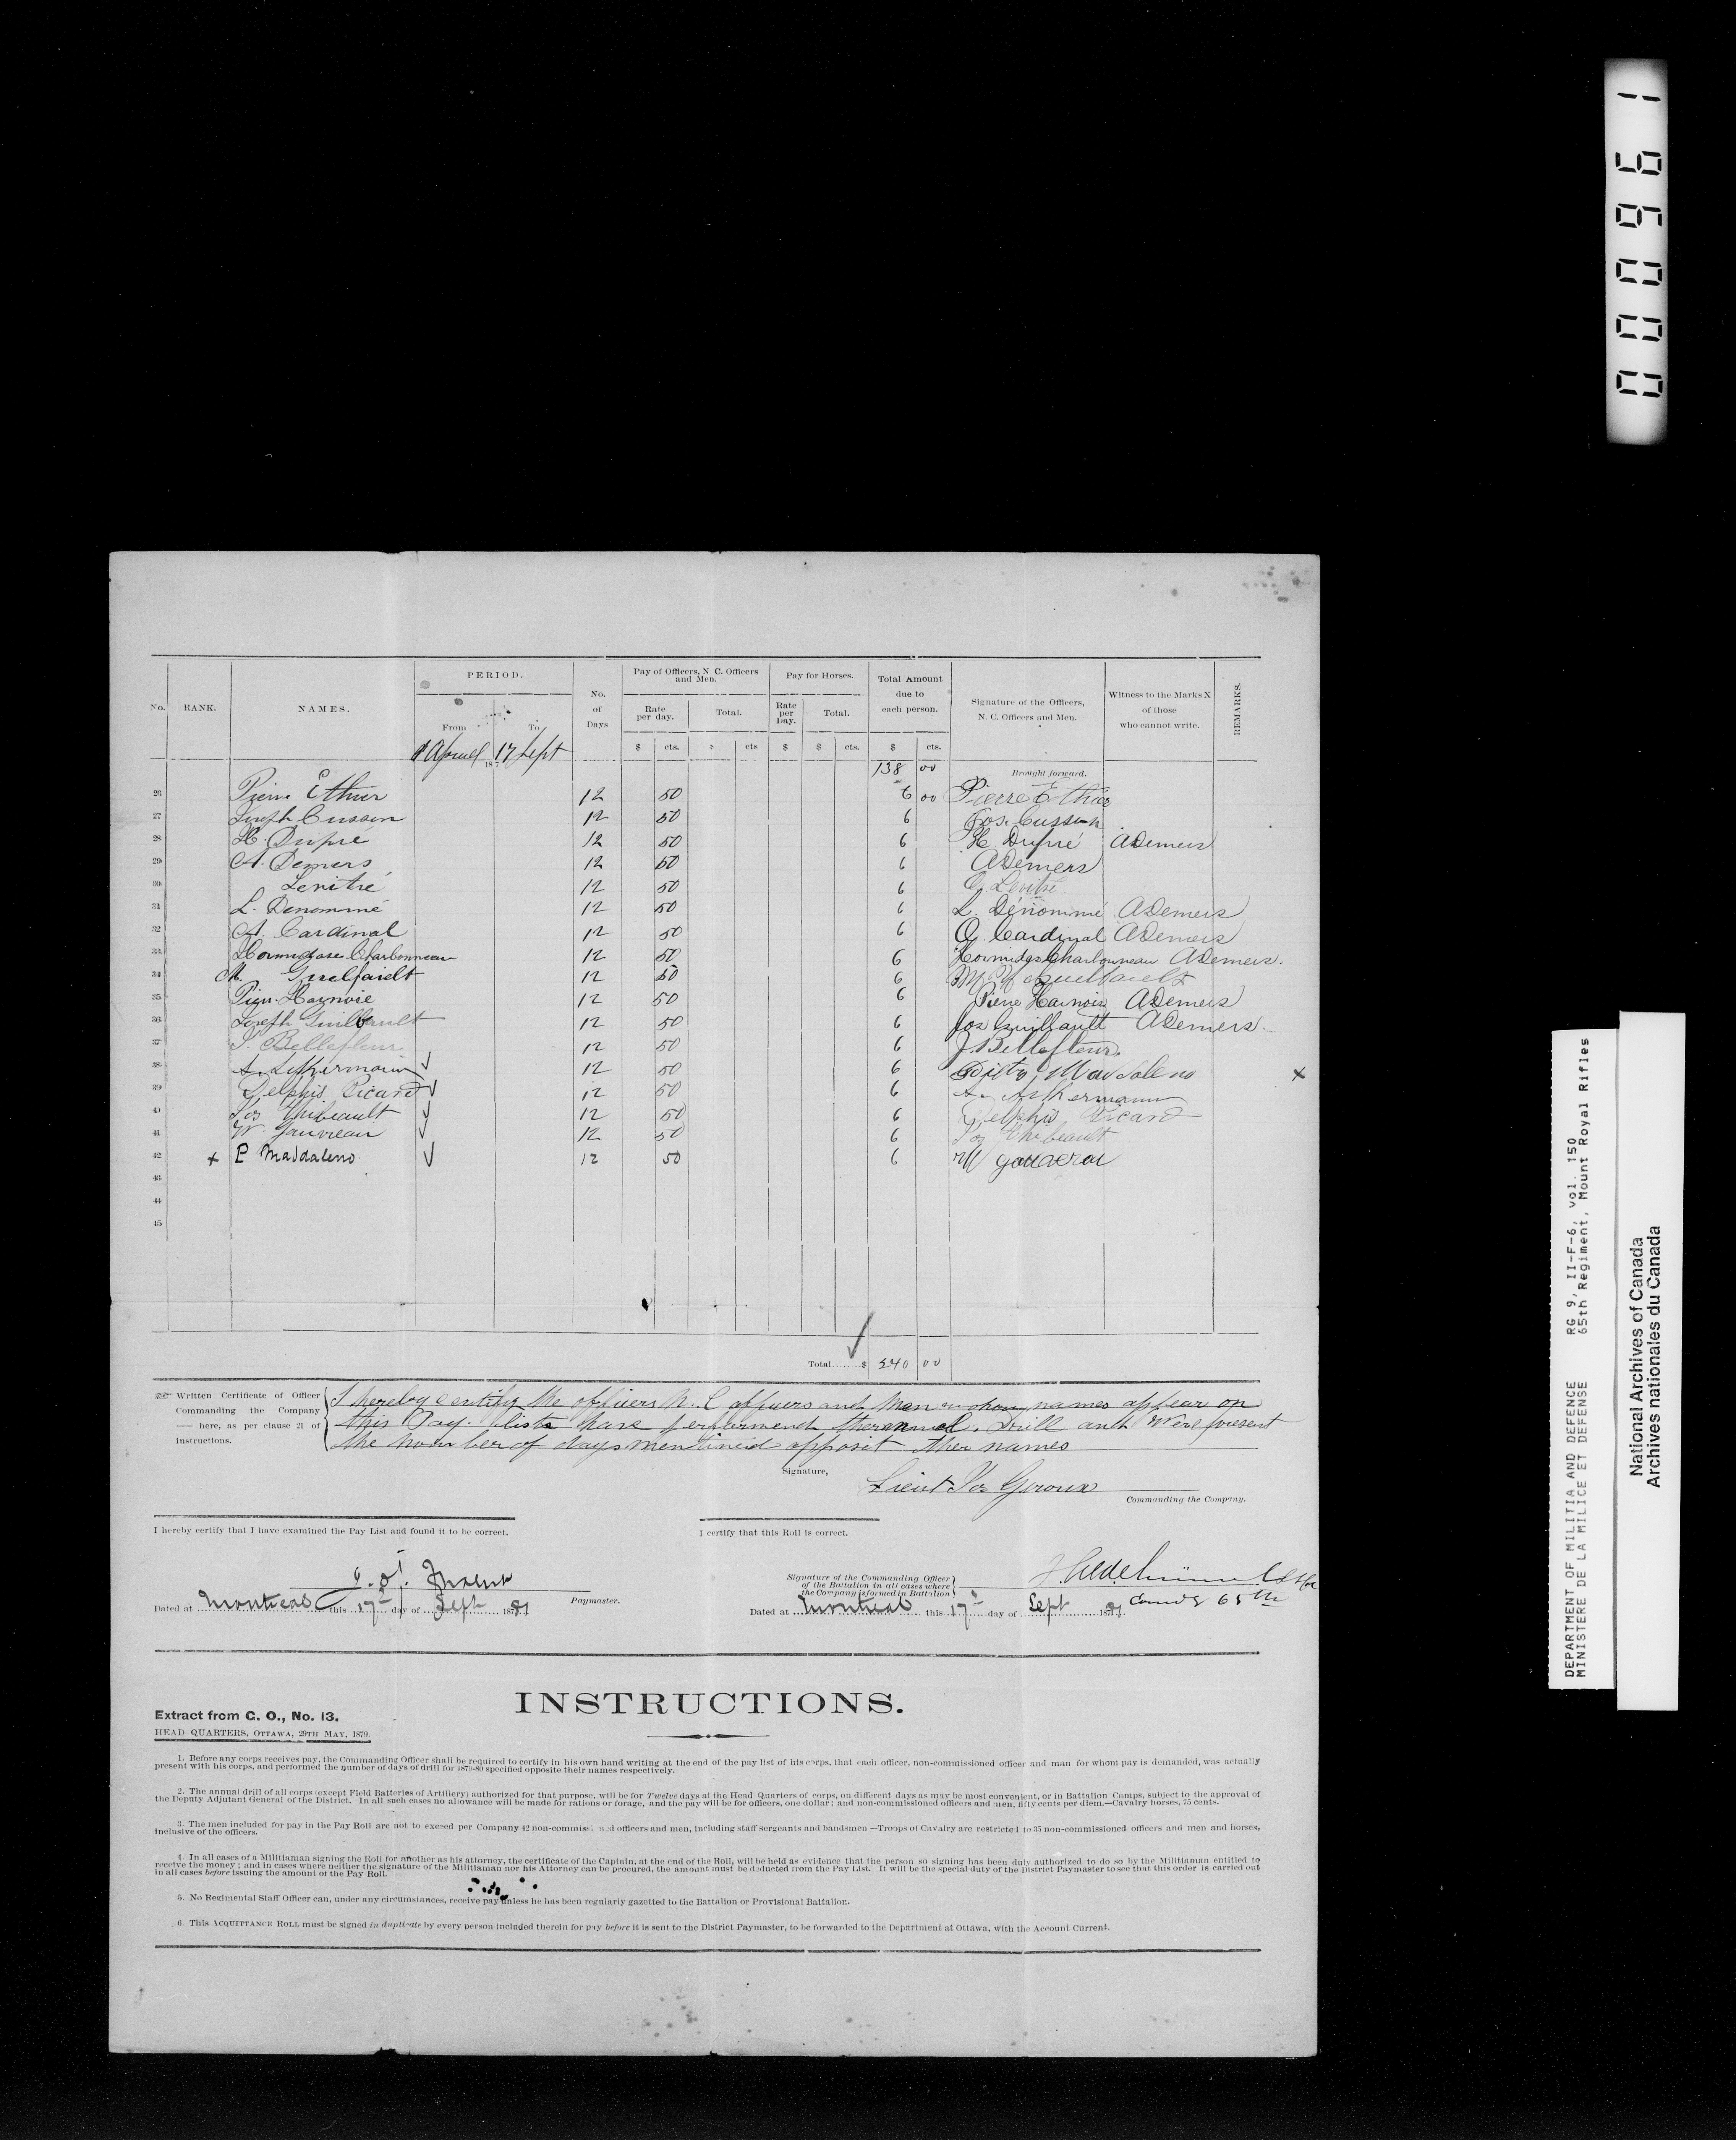 000961
No.
RANK.
NAMES.
PERIOD.
From
To
1 April 187 17 Sept
No. of Days
Pay of Officers, N. C. Officers and Men.
Rate per day.
Total.
Pay for Horses.
Rate per Day.
Total.
Total Amount due to each person.
Signature of the Officers, N. C. Officers and Men.
Witness to the Marks X of those who cannot write.
REMARKS.
$ cts. $ cts $ $ cts. $ cts.
138 00 Brought forward.
26 Pierre Ethier 12 50 6 00 Pierre Ethier
27 Joseph Cusson 12 50 6 Jos. Cusson
28 H. Dupré 12 50 6 H. Dupré ADemers
29 A. Demers 12 50 6 ADemers
30 Levitré 12 50 6 Levitré
31 L. Denommé 12 50 6 L. Dénommé ADemers
32 A. Cardinal 12 50 6 Cardinal ADemers
33 Hormidase Charbonneau 12 50 6 Hormidas Charbonneau ADemers.
34 M. 12 50 6 M
35 Pierr 12 50 6 Pierre Harnois ADemers
36 Joseph Guilbault 12 50 6 Jos Guilbault ADemers.
37 J. Bellefleur 12 50 6 J. Bellefleur.
38 12 50 6 Maddaleno x
39 Delphis Picard 12 50 6
40 Jos Thibeault 12 50 6 Delphis Picard
41 W. Gauvreau 12 50 6 Jos Thibeault
42 x P Maddaleno 12 50 6 W
43
44
45
Total......$ 240 00
Written Certificate of Officer Commanding the Company —— here, as per clause 21 of instructions.
I hereby certify the officers N. C officers and men whom names appear on
this Pay. lists have performend ther annual. Drill and Were present
the noumber of days mentined opposit ther names
Signature,
Lieut Jos Giroux
Commanding the Company.
I hereby certify that I have examined the Pay List and found it to be correct,
Paymaster.
Dated at Montreal this 17 day of Sept 1881
I certify that this Roll is correct.
Signature of the Commanding Officer of the Battalion in all cases where the Company is formed in Battalion
Comdg 65th
Dated at Montreal this 17 day of Sept 1881
INSTRUCTIONS.
Extract from G. O., No. 13.
HEAD QUARTERS, OTTAWA, 29TH MAY, 1879.
1. Before any corps receives pay, the Commanding Officer shall be required to certify in his own hand writing at the end of the pay list of his corps, that each officer, non-commissioned officer and man for whom pay is demanded, was actually
present with his corps, and performed the number of days of drill for 1879-80 specified opposite their names respectively.
2. The annual drill of all corps (except Field Batteries of Artillery) authorized for that purpose, will be for Twelve days at the Head Quarters of corps, on different days as may be most convenient, or in Battalion Camps, subject to the approval of
the Deputy Adjutant General of the District. In all such cases no allowance will be made for rations or forage, and the pay will be for officers, one dollar; and non-commissioned officers and men, fifty cents per diem.—Cavalry horses, 75 cents.
3. The men included for pay in the Pay Roll are not to exceed per Company 42 non-commissioned officers and men, including staff sergeants and bandsmen—Troops of Cavalry are restricted to 35 non-commissioned officers and men and horses,
inclusive of the officers.
4. In all cases of a Militiaman signing the Roll for another as his attorney, the certificate of the Captain, at the end of the Roll, will be held as evidence that the person so signing has been duly authorized to do so by the Militiaman entitled to
receive the money; and in cases where neither the signature of the Militiaman nor his Attorney can be procured, the amount must be deducted from the Pay List. It will be the special duty of the District Paymaster to see that this order is carried out
in all cases before issuing the amount of the Pay Roll.
5. No Regimental Staff Officer can, under any circumstances, receive pay unless he has been regularly gazetted to the Battalion or Provisional Battalion.
6. This ACQUITTANCE ROLL must be signed in duplicate by every person included therein for pay before it is sent to the District Paymaster, to be forwarded to the Department at Ottawa, with the Account Current.
DEPARTMENT OF MILITIA AND DEFENCE RG 9, II-F-6, vol. 150
MINISTERE DE LA MILICE ET DEFENSE 65th Regiment, Mount Royal Rifles
National Archives of Canada
Archives nationales du Canada